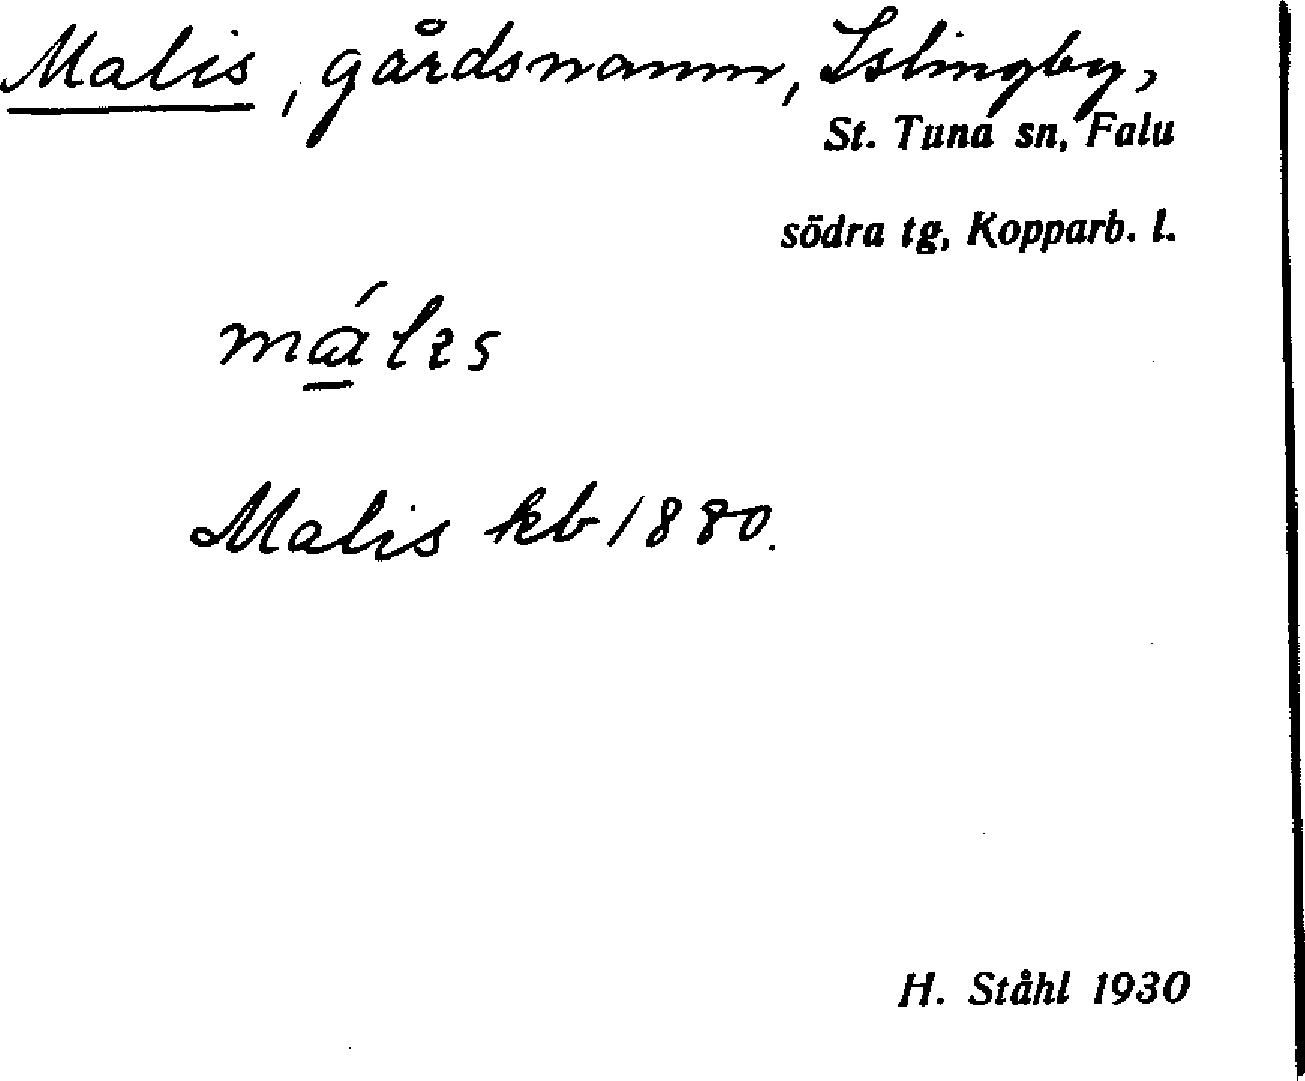 Malis, gårdsnamn, Islingby,
St. Tuna sn, Falu
södra tg, Kopparb. l.
Malis kb 1880.
H. Ståhl 1930